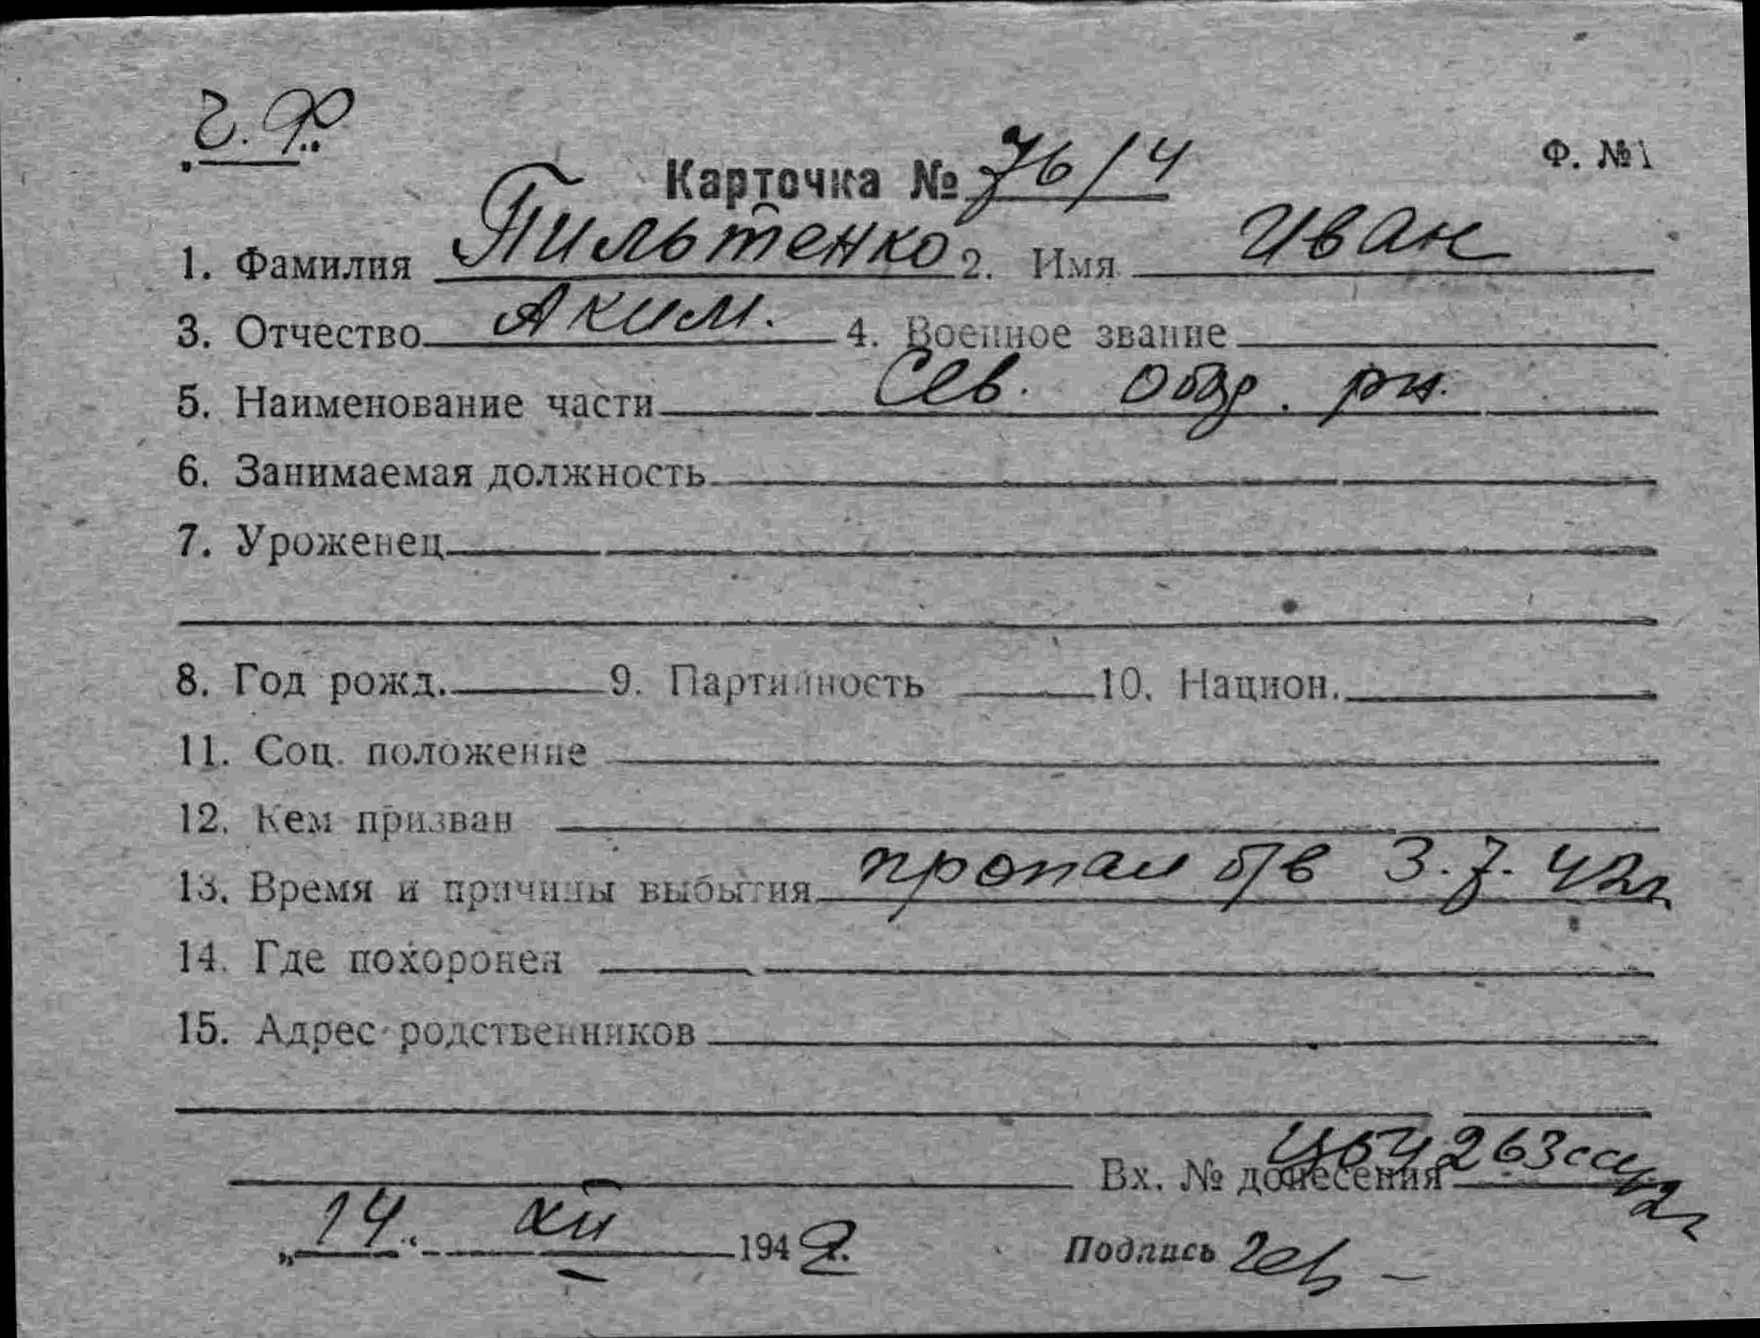 Ч. Ф.
Ф. №1
Карточка № 76/4
1. Фамилия Пильтенко 2. Имя Иван
3. Отчество Аким. 4. Военное звание
5. Наименование части Сев. обор. рн.
6. Занимаемая должность
7. Уроженец
8. Год рожд. 9. Партийность 10. Национ.
11. Соц. положение
12. Кем призван
13. Время и причины выбытия пропал б/в 3.7.42г
14. Где похоронен
15. Адрес родственников
Вх. № донесения 263сс 42г
„14“ XII 1942.
Подпись